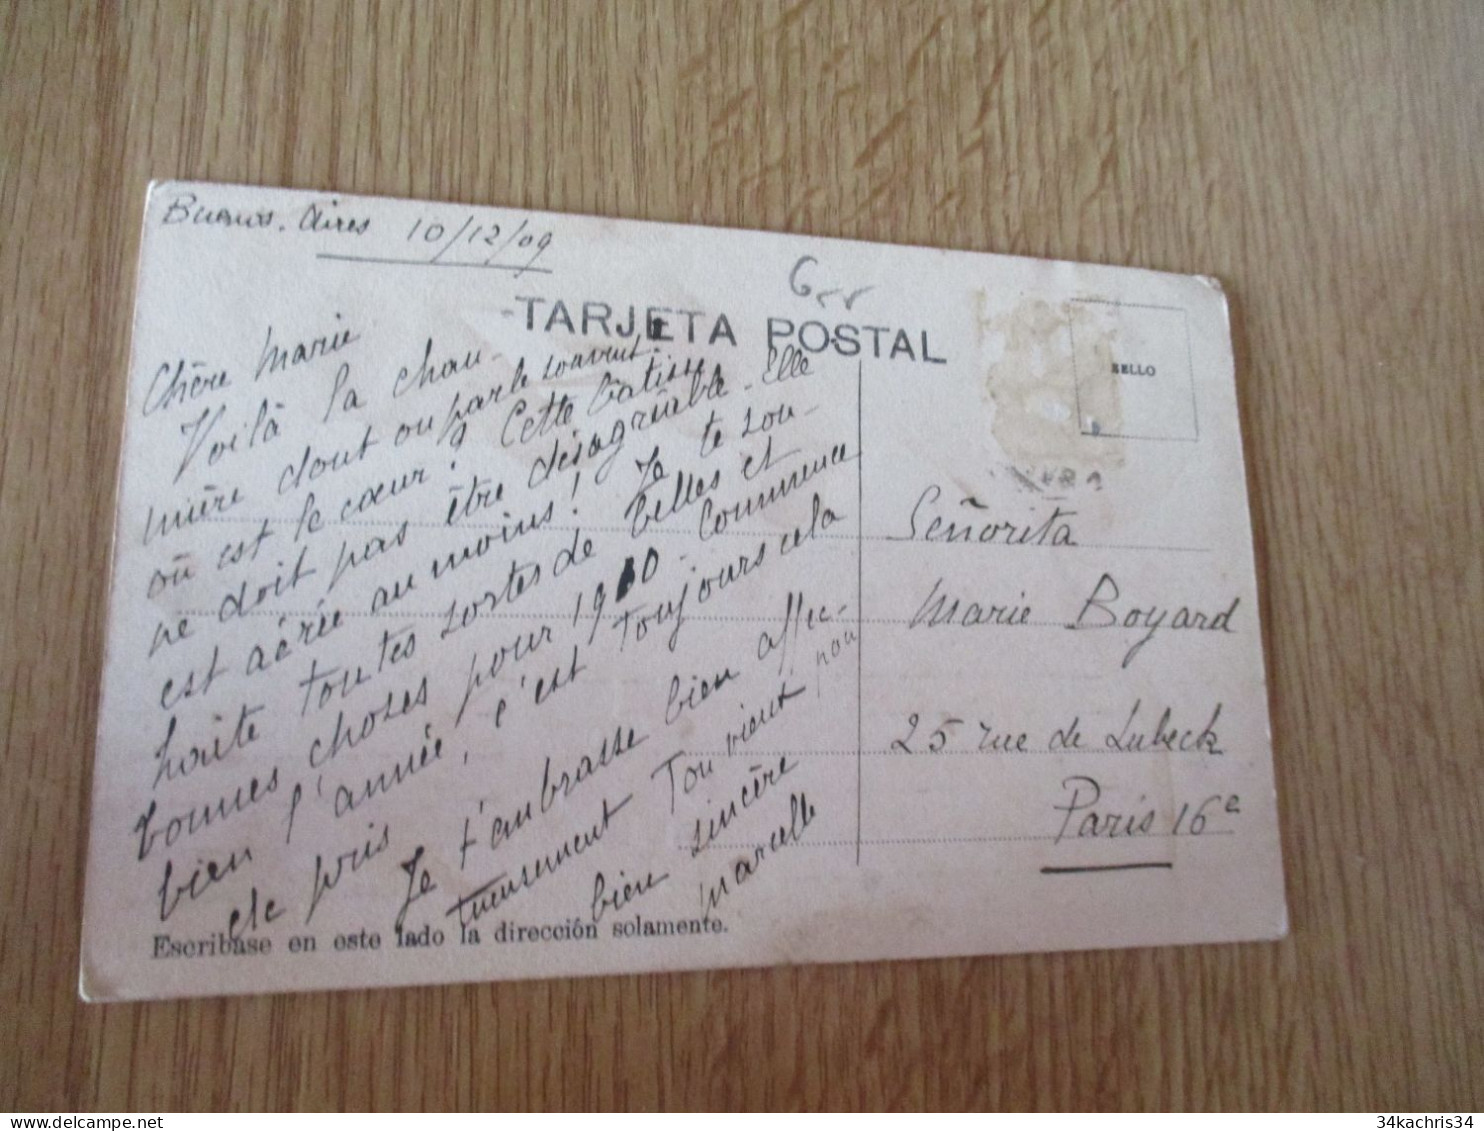 Buenos. Aires 10/12/09
TARJETA POSTAL
SELLO
Chère Marie
Voilà la chau-
mière dont on parle souvent.
où est le cœur? Cette bâtisse
ne doit pas être désagréable. Elle
est aérée au moins! Je te sou-
haite toutes sortes de belles et
bonnes choses pour 1910. Commence
bien l'année, c'est toujours cela
de pris
Je t'embrasse bien affec-
tueusement Ton vieux
bien sincère
Marcelle
Señorita
Marie Boyard
25 rue de Lubeck
Paris 16e
Escribase en este lado la dirección solamente.
34kachris34